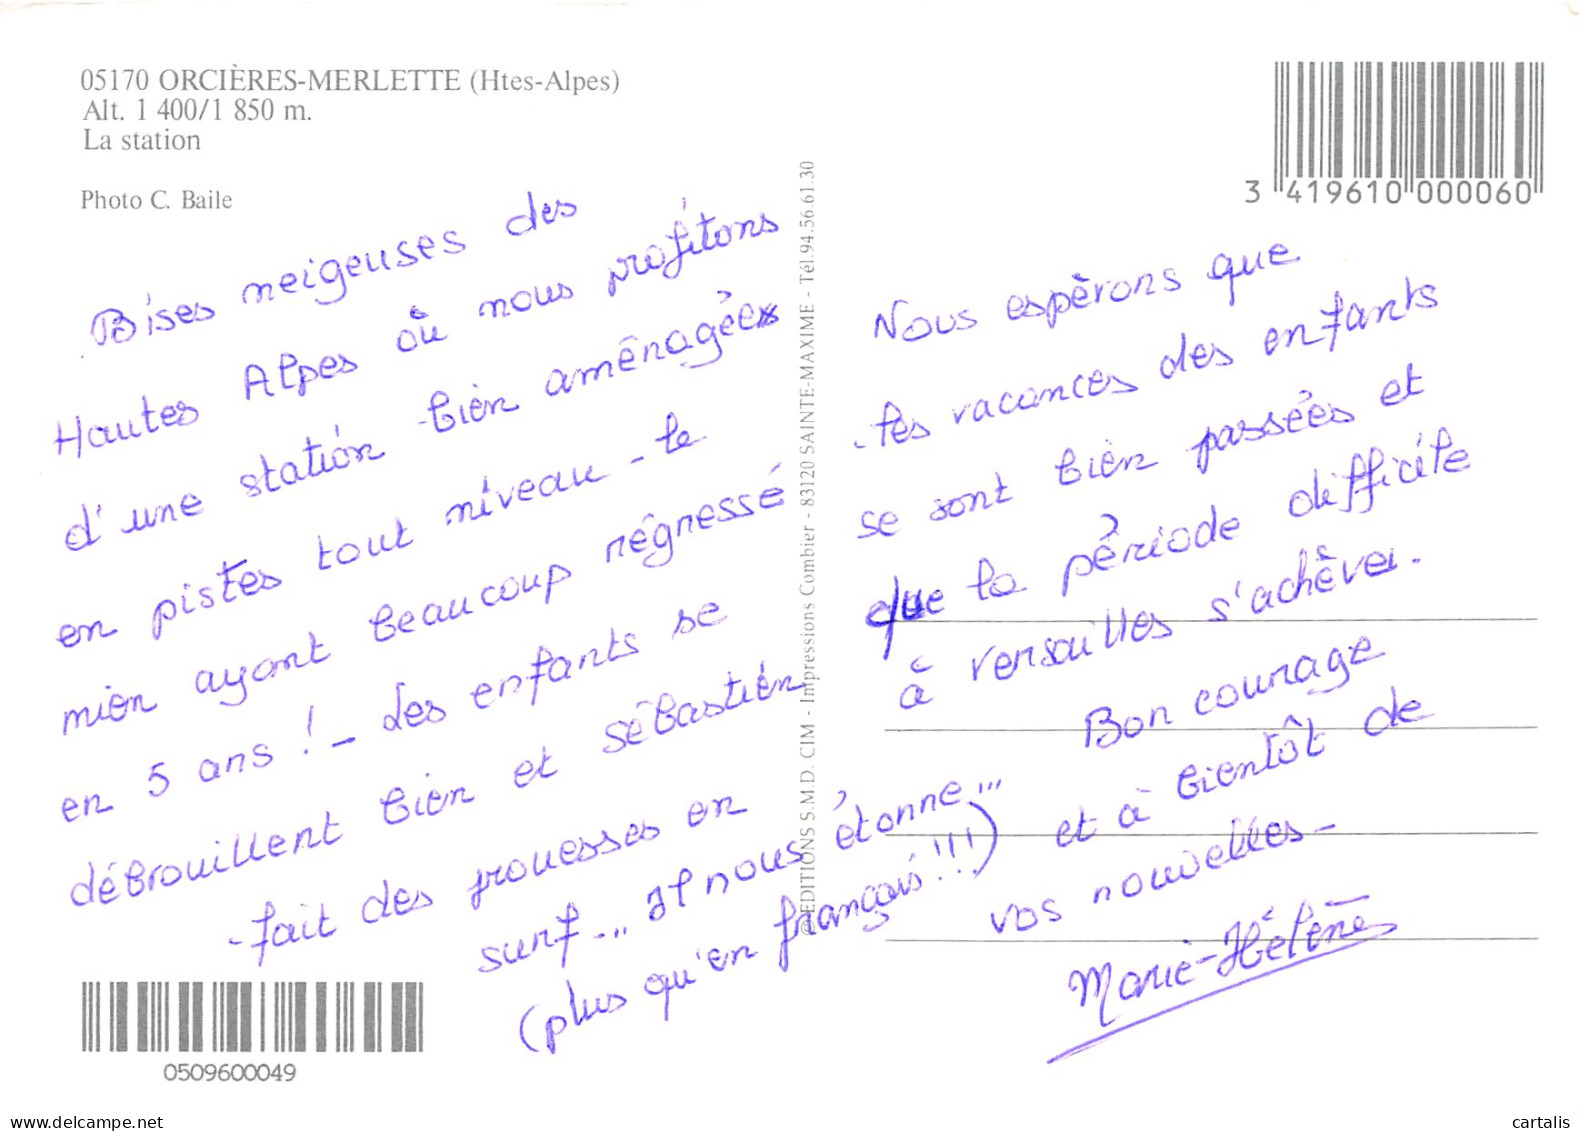 05170 ORCIÈRES-MERLETTE (Htes-Alpes)
Alt. 1 400/1 850 m.
La station
Photo C. Baile
Bises neigeuses des
Hautes Alpes où nous profitons
d'une station bien aménagée
en pistes tout niveau - le
mien ayant beaucoup régressé
en 5 ans ! - Les enfants se
débrouillent bien et sébastien
fait des prouesses en
surf... Il nous étonne...
(plus qu'en français !!!)
© EDITIONS S.M.D. CIM - Impressions Combier - 83120 SAINTE-MAXIME - Tél. 94.56.61.30
3 419610 000060
Nous espérons que
les vacances des enfants
se sont bien passées et
que la période difficile
à versailles s'achève.
Bon courage
et à bientôt de
vos nouvelles -
Marie-Hélène
0509600049
www.delcampe.net
cartalis